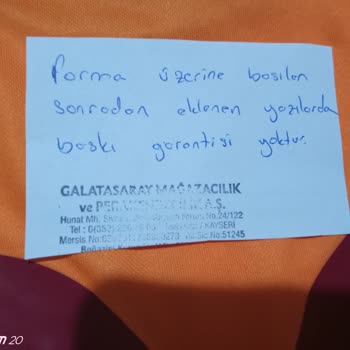 Forma üzerine basılan
sonradan eklenen yazılarda
baskı garantisi yoktur.
GALATASARAY MAĞAZACILIK
ve PERAKENDECİLİK A.Ş.
Hunat Mh. No:24/122
Tel : 0(352) KAYSERİ
Mersis No: Sic No:51245
20